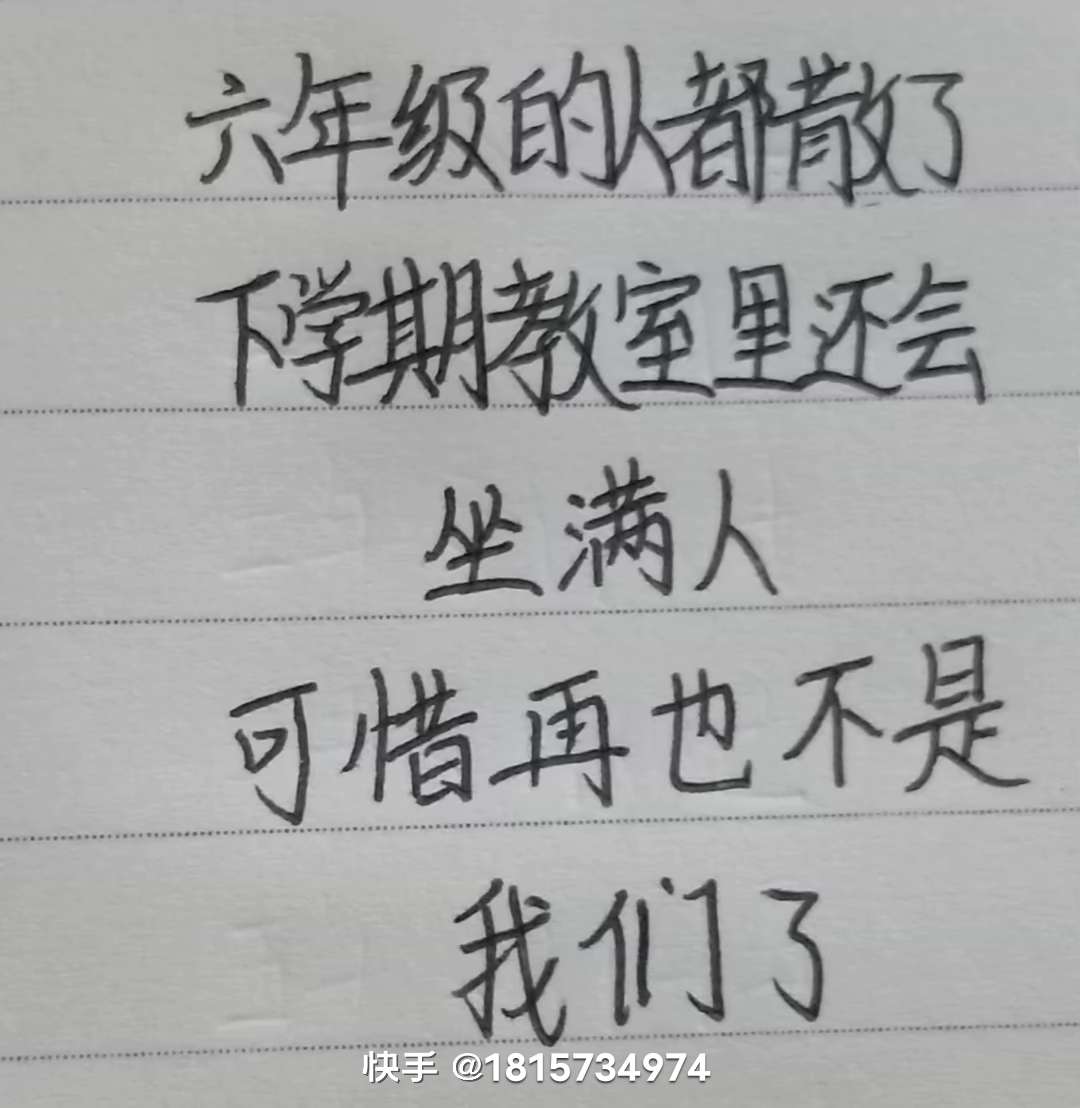 六年级的人都散了
下学期教室里还会
坐满人
可惜再也不是
我们了
快手 @1815734974